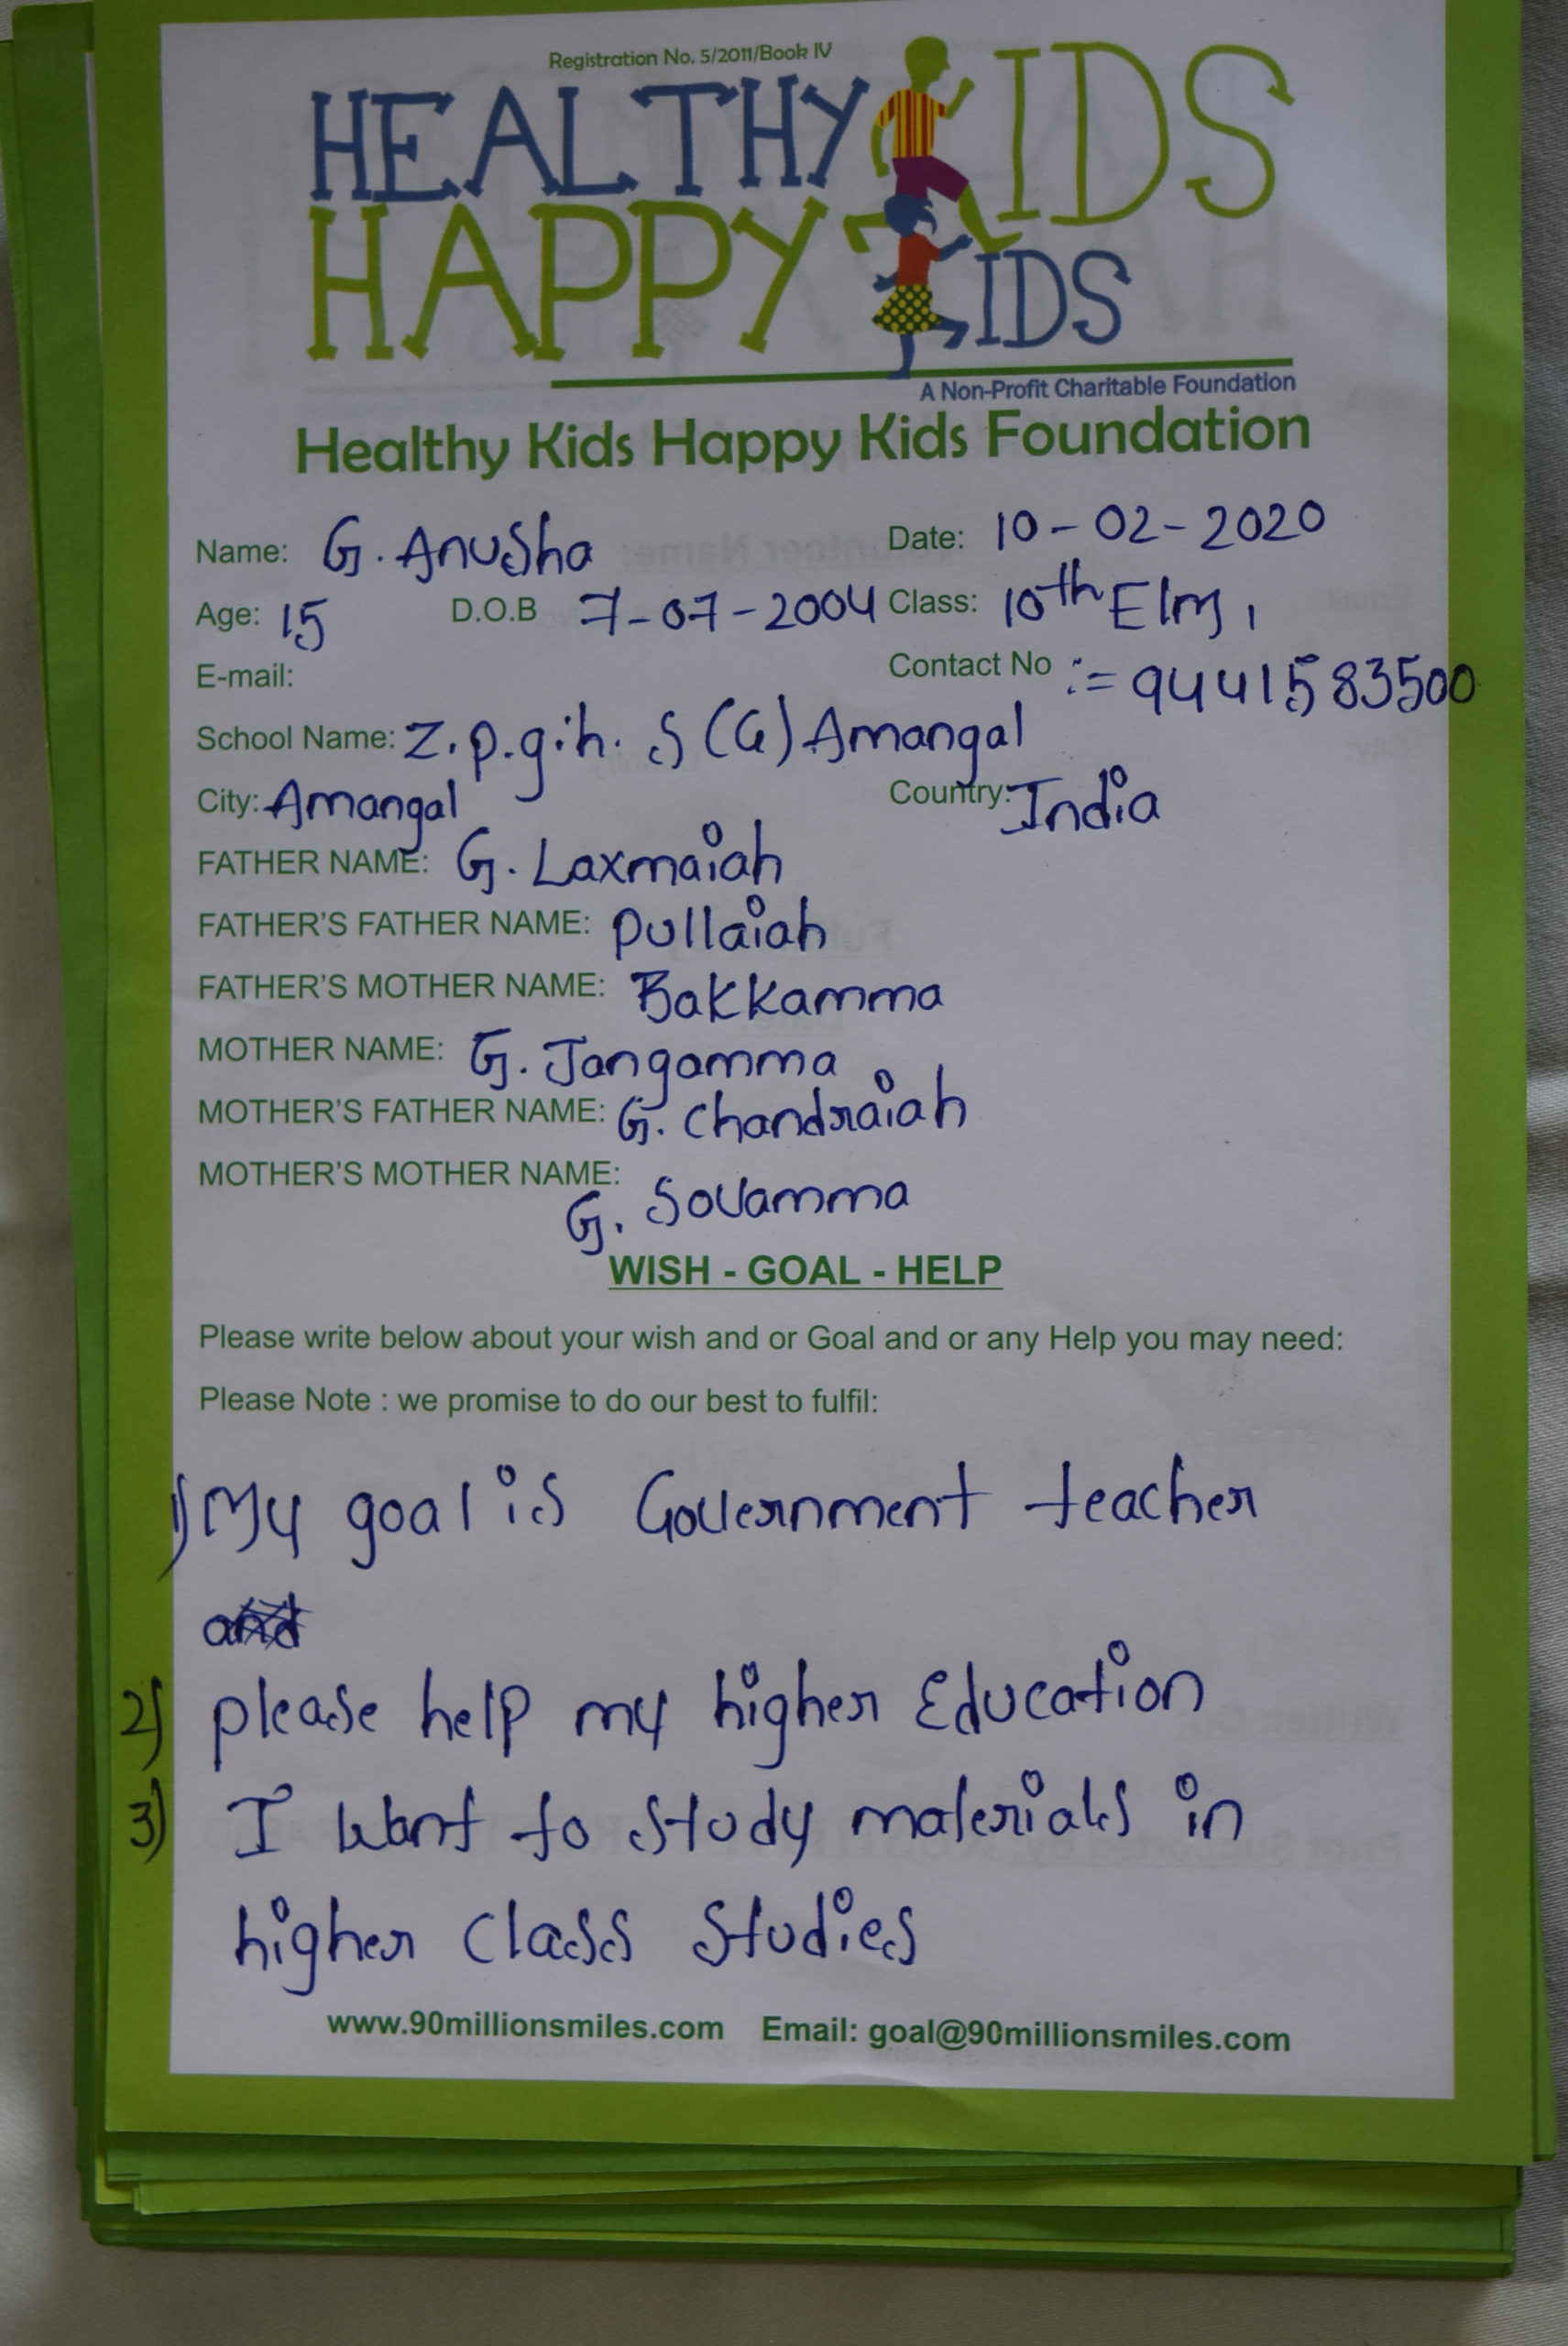 Registration No. 5/2011/Book IV
HEALTHY KIDS
HAPPY KIDS
A Non-Profit Charitable Foundation
Healthy Kids Happy Kids Foundation
Name: G. Anusha Date: 10-02-2020
Age: 15 D.O.B 7-07-2004 Class: 10th E/m,
E-mail: Contact No := 9441583500
School Name: Z.p.g.h. S (G) Amangal
City: Amangal Country: India
FATHER NAME: G. Laxmaiah
FATHER'S FATHER NAME: pullaiah
FATHER'S MOTHER NAME: Bakkamma
MOTHER NAME: G. Jangamma
MOTHER'S FATHER NAME: G. Chandraiah
MOTHER'S MOTHER NAME: G. Sovamma
WISH - GOAL - HELP
Please write below about your wish and or Goal and or any Help you may need:
Please Note : we promise to do our best to fulfil:
1) My goal is Government teacher
and
2) please help my higher Education
3) I want to study materials in
higher Class Studies
www.90millionsmiles.com Email: goal@90millionsmiles.com